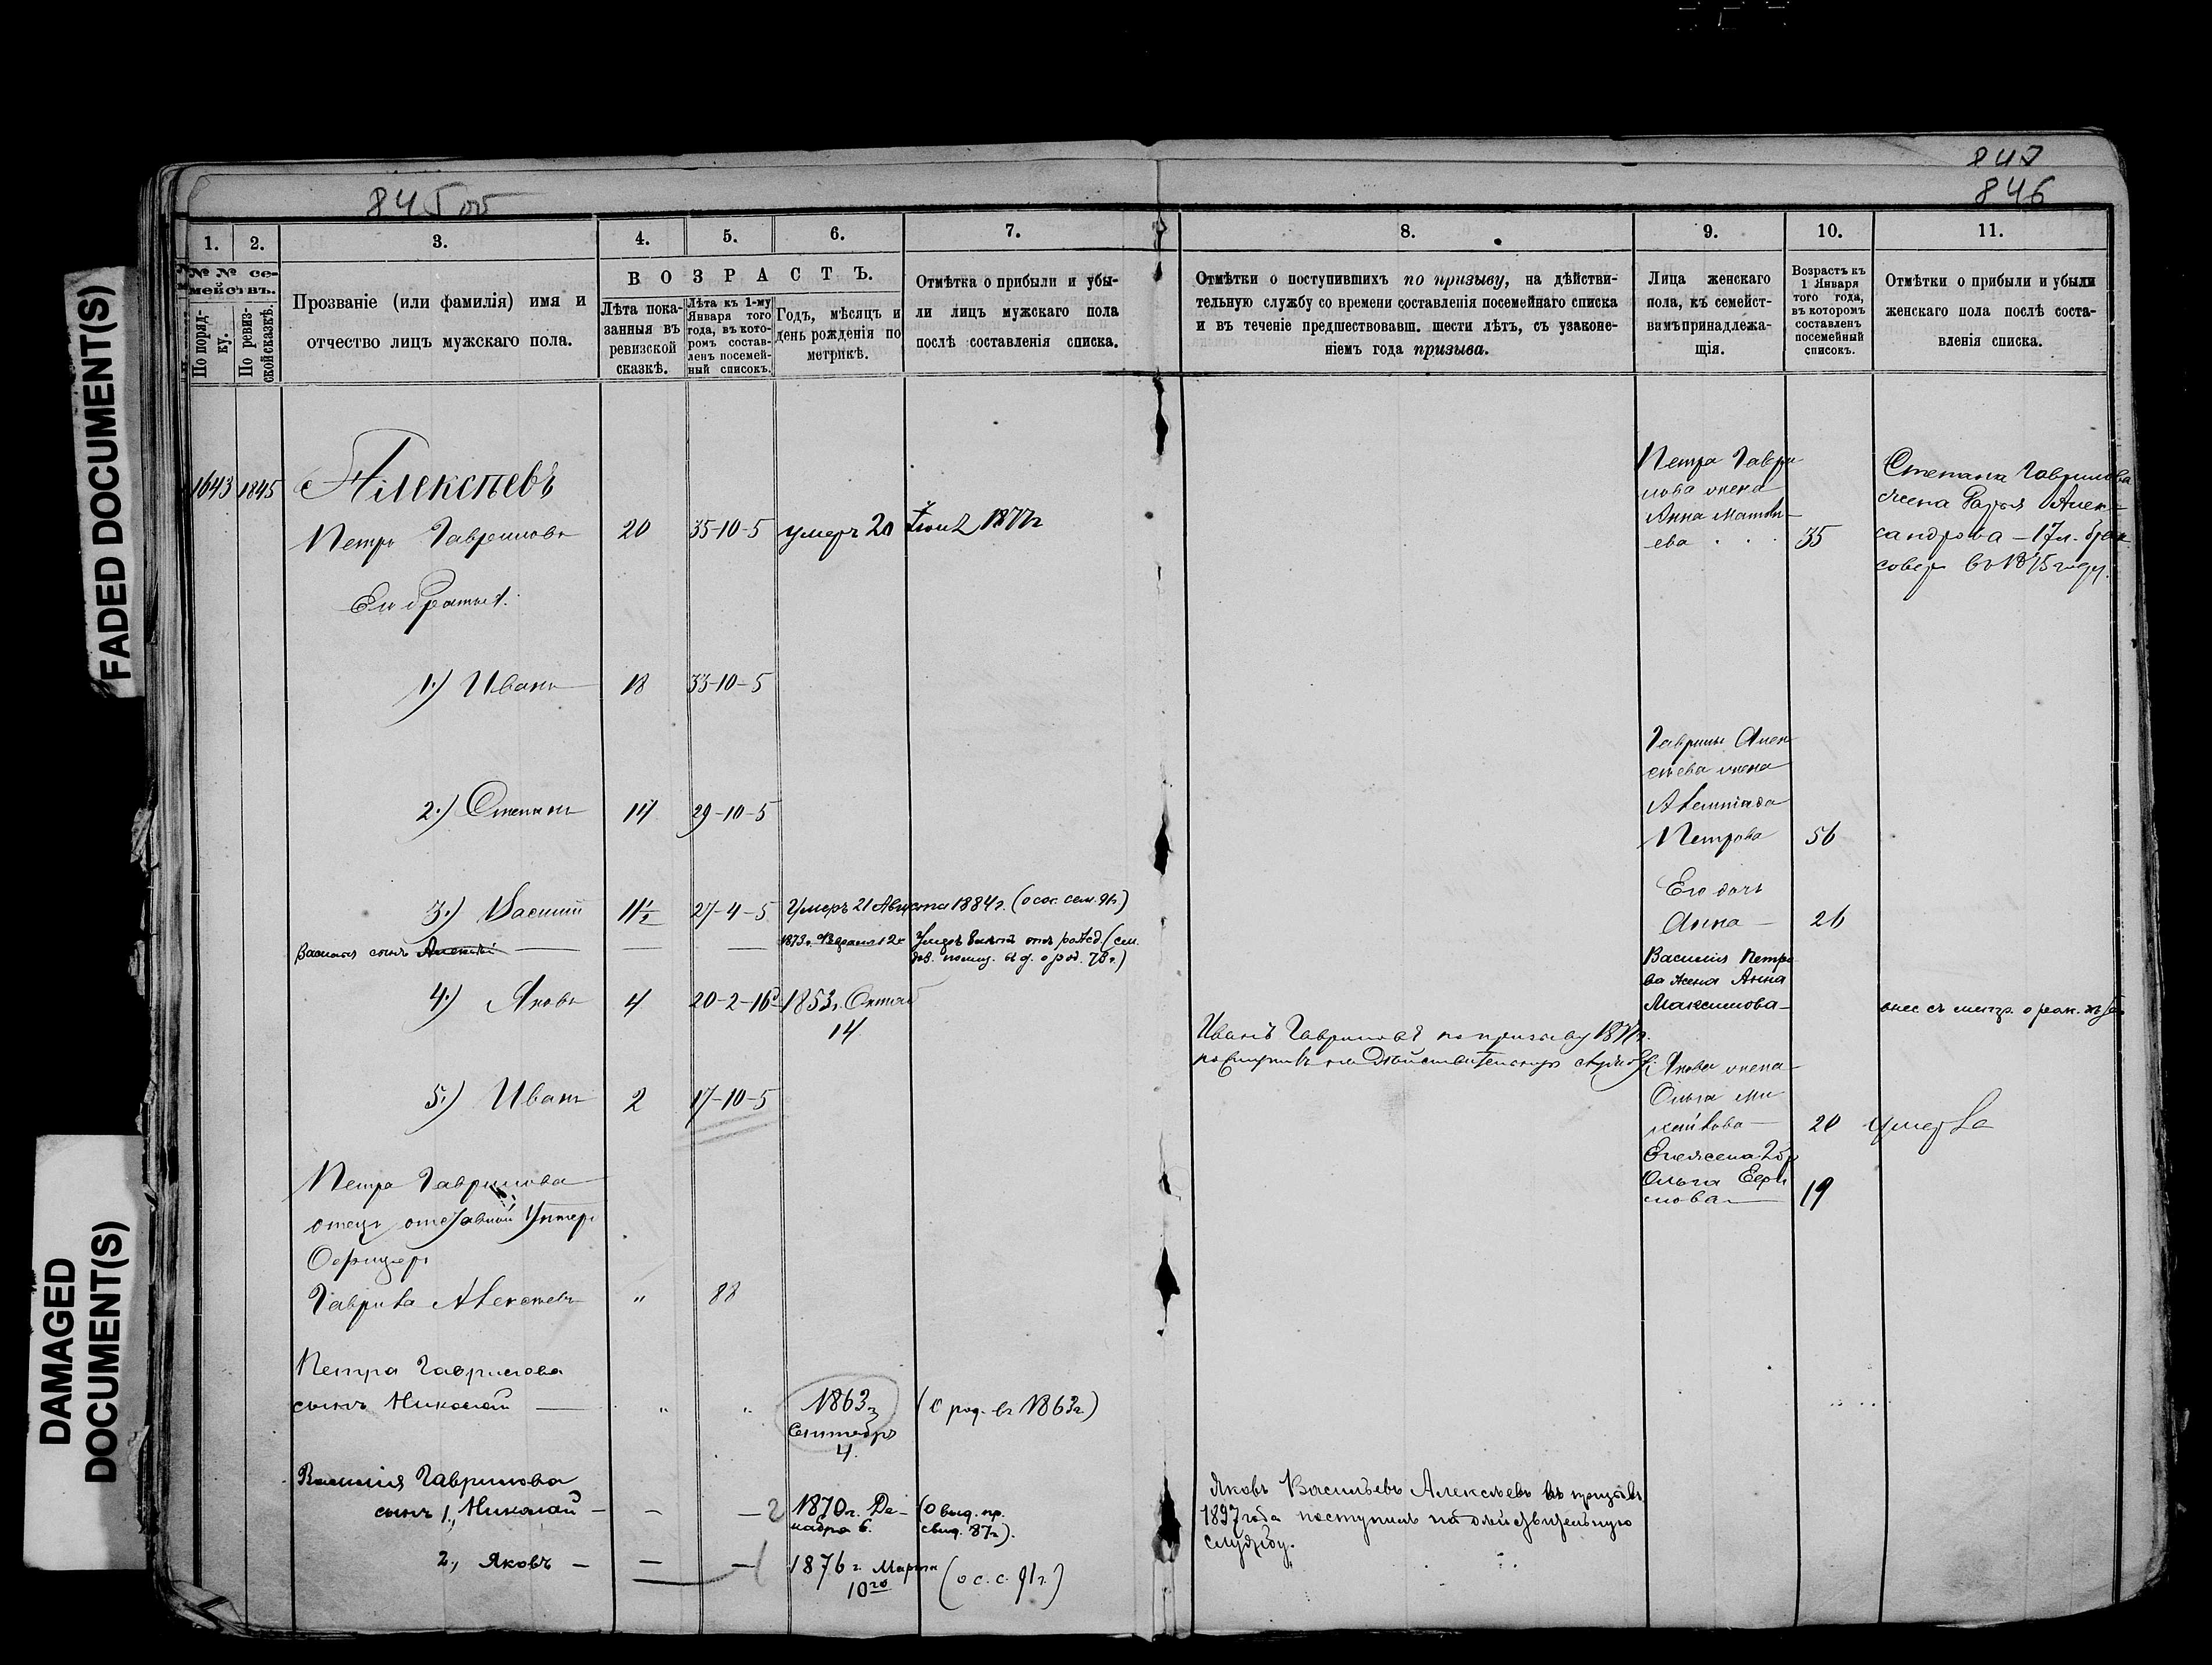 FADED DOCUMENT(S)
DAMAGED
DOCUMENT(S)
845 об
847
846
1.
2.
3.
4.
5.
6.
7.
8.
9.
10.
11.
№ № се-
мействъ.
По поряд-
ку.
По ревиз-
ской сказкѣ.
Прозваніе (или фамилія) имя и
отчество лицъ мужскаго пола.
ВОЗРАСТЪ.
Лѣта пока-
занныя въ
ревизской
сказкѣ.
Лѣта къ 1-му
Января того
года, въ кото-
ромъ состав-
ленъ посемей-
ный списокъ.
Годъ, мѣсяцъ и
день рожденія по
метрикѣ.
Отмѣтка о прибыли и убы-
ли лицъ мужскаго пола
послѣ составленія списка.
Отмѣтки о поступившихъ по призыву, на дѣйстви-
тельную службу со времени составленія посемейнаго списка
и въ теченіе предшествовавш. шести лѣтъ, съ узаконе-
ніемъ года призыва.
Лица женскаго
пола, къ семейст-
вамъ принадлежа-
щія.
Возрастъ къ
1 Января
того года,
въ которомъ
составленъ
посемейный
списокъ.
Отмѣтки о прибыли и убыли
женскаго пола послѣ соста-
вленія списка.
1643 1845 Алексѣевъ
Петръ Гавриловъ 20 35-10-5 умеръ 20 1877г
Его братья:
1.) Иванъ 18 33-10-5
2.) Степанъ 14 29-10-5
3.) Василій 11½ 27-4-5 Умеръ 21 Августа 1884г. (о сос. сем. 91г)
Василія сынъ Алексѣй — — — 1873г. Февраля 12
4.) Яковъ 4 20-2-16 1853г. Октяб
14
5.) Иванъ 2 17-10-5
Петра Гаврилова
отецъ отставной Унтеръ
Офицеръ
Гаврила Алексѣевъ " 88
Петра Гаврилова
сынъ Николай — " " 1863г (о род. въ 1863г)
Сентября
4.
Василія Гаврилова
сынъ 1., Николай — — — 2 1870г. Де- (О выд. пр.
кабря 6. свид. 87г).
2., Яковъ — — — 1 1876г. Марта (о с. с. 91г.)
10го
Иванъ Гавриловъ по призыву 1877г.
поступилъ на Дѣйствительную службу.
Яковъ Васильевъ Алексѣевъ въ призывъ
1897 года поступилъ на дѣйствительную
службу.
Петра Гаври
лова жена
Анна Матвѣ-
ева 35
Гаврилы Алек
сѣева жена
Петрова 56
Его дочь
Анна — 26
Василія Петро
ва жена Анна
Максимова —
Якова жена
Ольга Ми
хайлова — 20 умерла
Ольга
19
Степана Гаврилова
жена Алек-
сандрова — 17 л. брак
совер въ 1875 году.